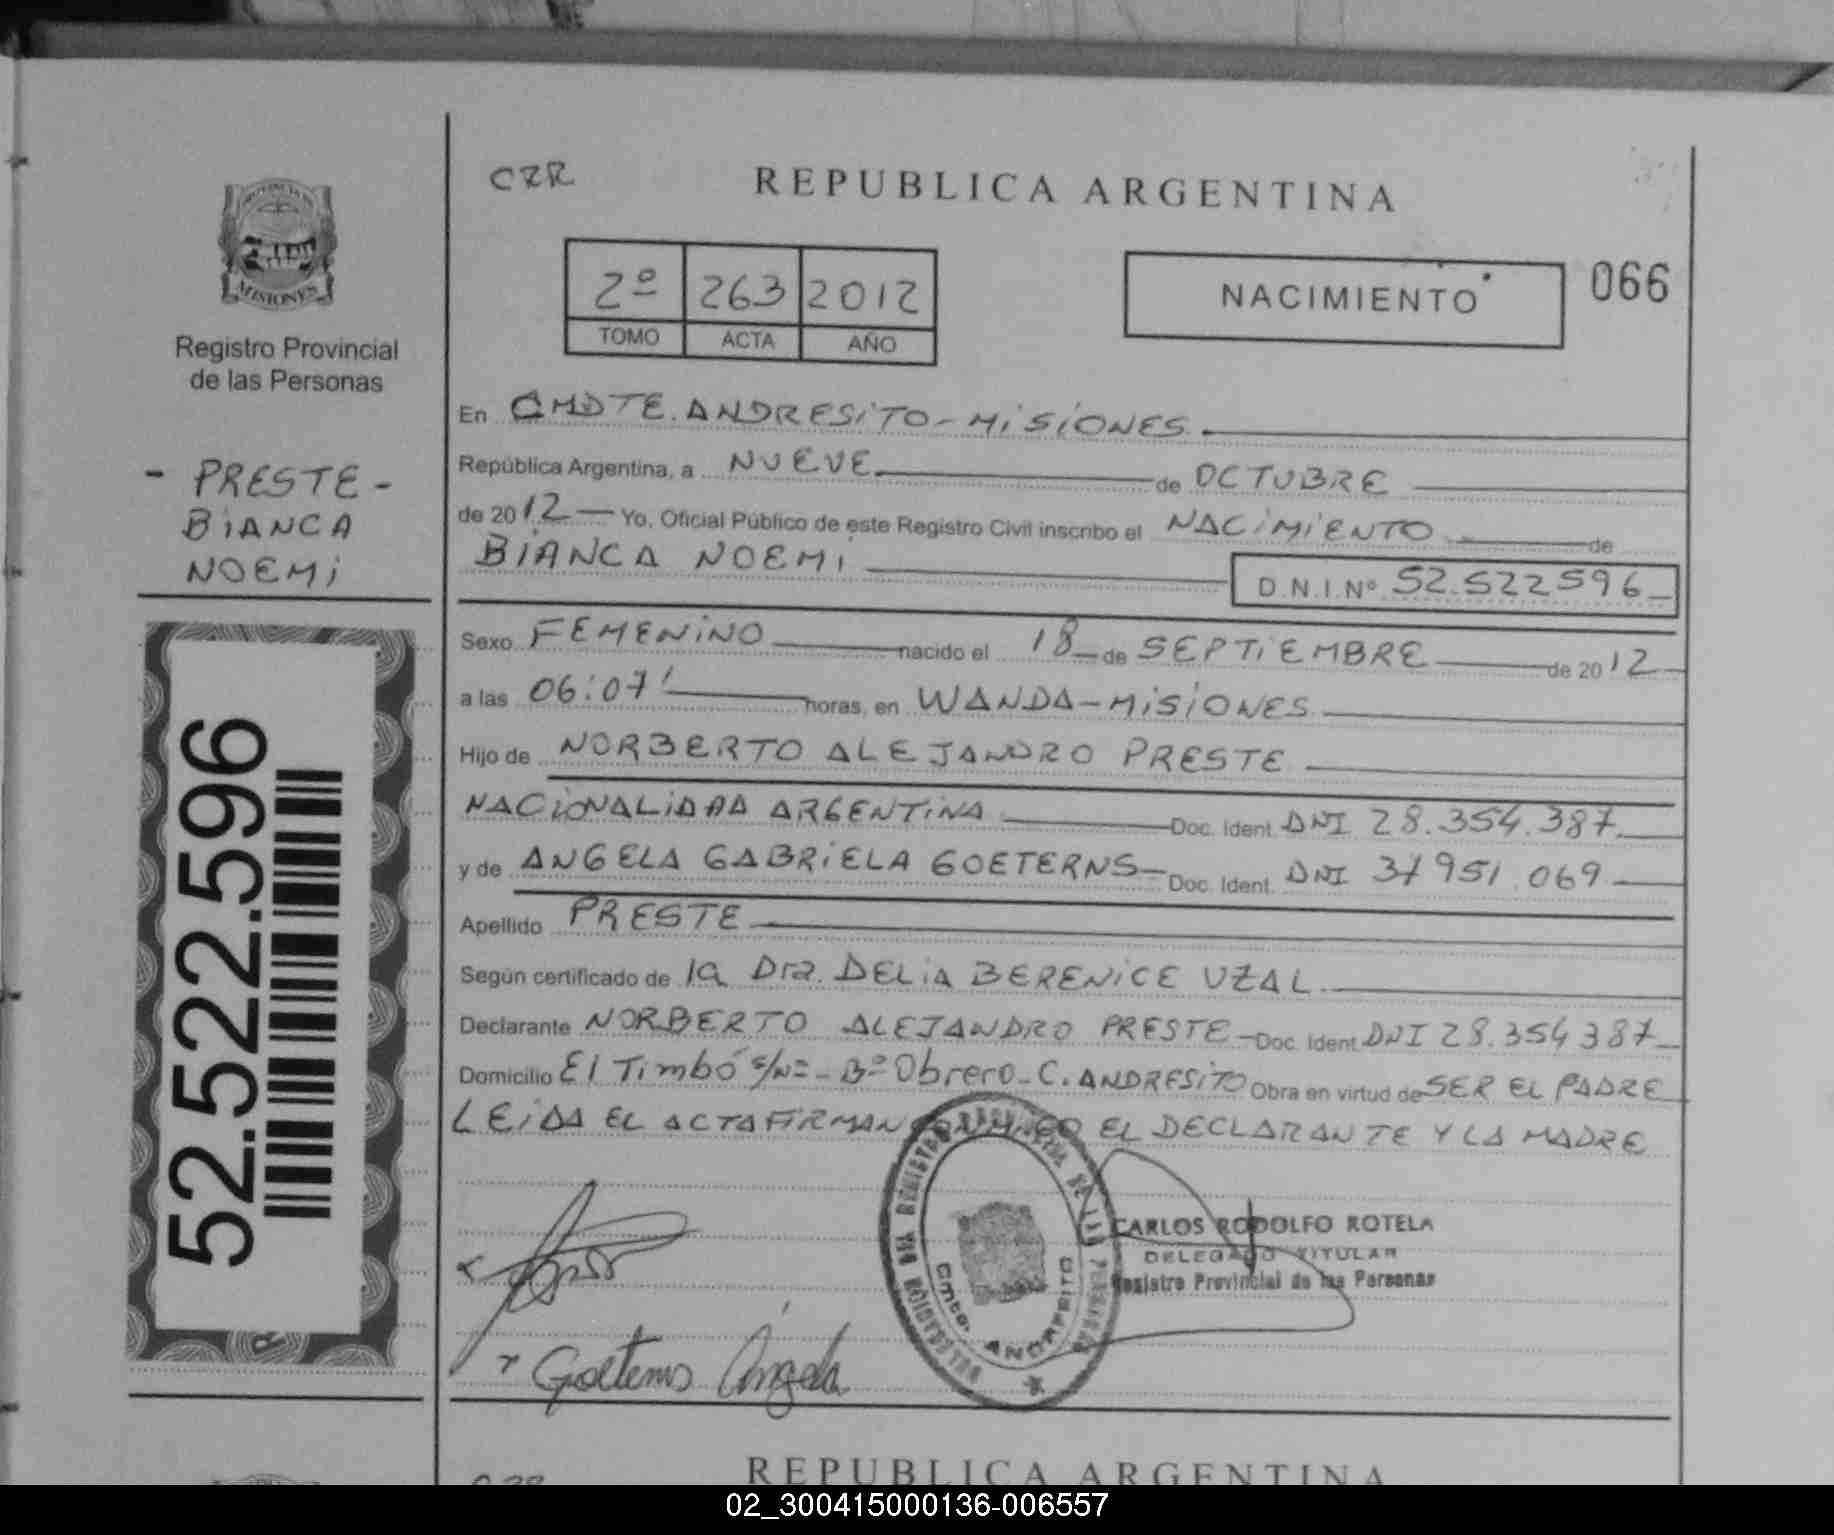 CZR
REPUBLICA ARGENTINA
MISIONES
Registro Provincial
de las Personas
- PRESTE -
BIANCA
NOEMI
52.522.596
2º 263 2012
TOMO ACTA AÑO
NACIMIENTO
066
En CMDTE. ANDRESITO - MISIONES
República Argentina, a NUEVE de OCTUBRE
de 2012 Yo, Oficial Público de este Registro Civil inscribo el NACIMIENTO de
BIANCA NOEMI D.N.I.Nº 52.522596
Sexo FEMENINO nacido el 18 de SEPTIEMBRE de 2012
a las 06:07' horas, en WANDA - MISIONES
Hijo de NORBERTO ALEJANDRO PRESTE
NACIONALIDAD ARGENTINA Doc. Ident. DNI 28.354.387
y de ANGELA GABRIELA GOETERNS Doc. Ident. DNI 37951.069
Apellido PRESTE
Según certificado de la DRA. DELIA BERENICE UZAL
Declarante NORBERTO ALEJANDRO PRESTE - Doc. Ident. DNI 28.354387
Domicilio El Timbó S/Nº - Bº Obrero - C. ANDRESITO Obra en virtud de SER EL PADRE
LEIDA EL ACTA FIRMAN CONMIGO EL DECLARANTE Y LA MADRE
CARLOS RODOLFO ROTELA
DELEGADO TITULAR
Registro Provincial de las Personas
Goeterns Angela
REPUBLICA ARGENTINA
02_300415000136-006557